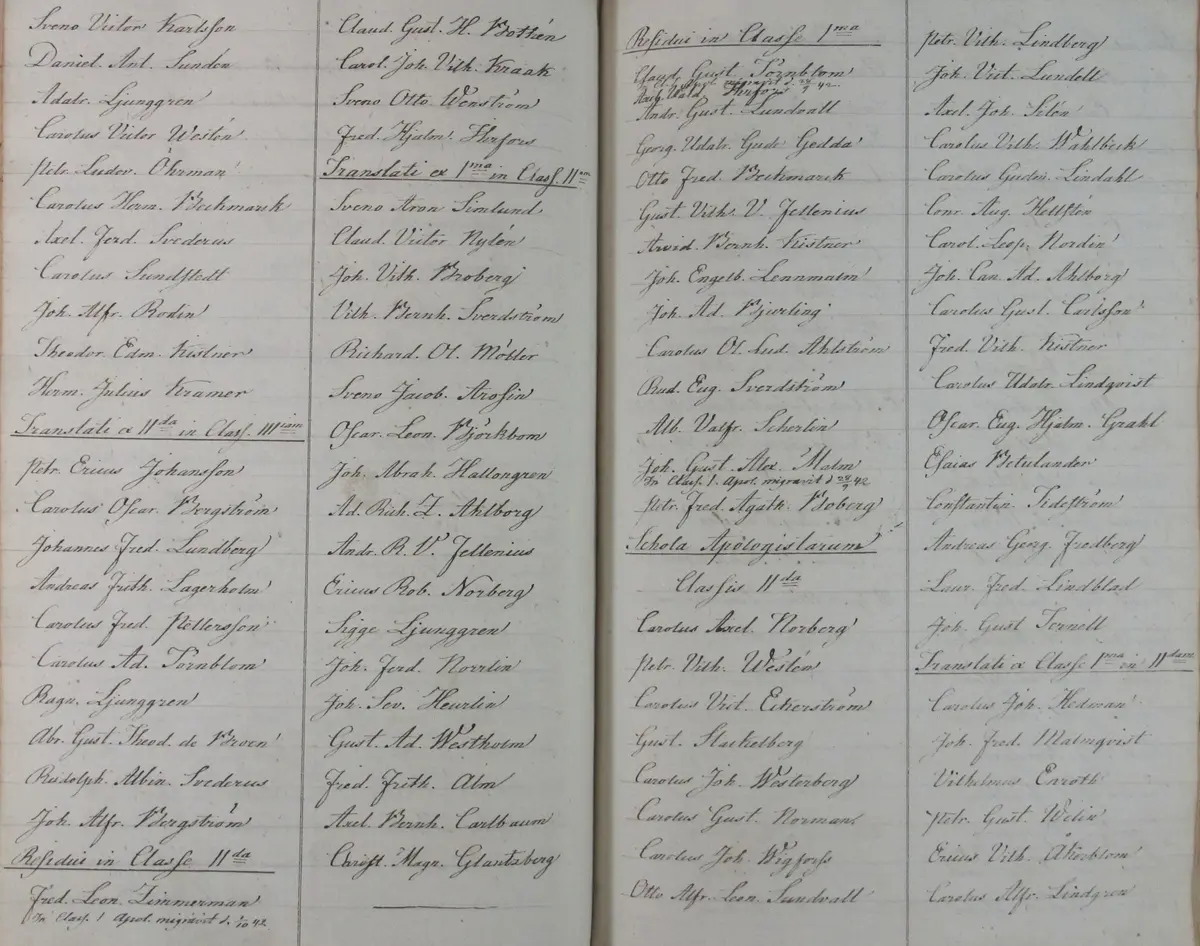 Sveno Victor Karlsson
Daniel. Ant. Sundén
Adalr. Ljunggren
Carolus Victor Westén
Petr. Ludov. Öhrman
Carolus Herm. Beckmarck
Axel. Ferd. Svederus
Carolus Sundstedt
Joh. Alfr. Rodin
Theodor Edm. Kistner
Herm. Julius Kramer
Translati ex IIda in Class. IIIiam
Petr. Ericus Johansson
Carolus Oscar Bergström
Johannes Fred. Lundberg
Andreas Frith. Lagerholm
Carolus Fred. Pettersson
Carolus Ad. Törnblom
Ragn. Ljunggren
Abr. Gust. Theod. de Broen
Rudolph. Albin. Svederus
Joh. Alfr. Bergström
Residui in Classe IIda
Fred. Leon. Zimmerman
In Class. 1 Apol. migravit d. 1/10 42
Claud. Gust. H. Bothén
Carol. Joh. Vilh. Kraak
Sveno Otto Wenström
Fred. Hjalm. Thrfors
Translati ex Ima in Class. IIam
Sveno Aron Simlund
Claud. Victor Nylén
Joh. Vilh. Broberg
Vilh. Bernh. Sverdström
Richard. Ol. Möller
Sveno Jacob. Arosin
Oscar. Leon. Björkbom
Joh. Abrah. Hallongren
Ad. Rich. Z. Ahlborg
Andr. R. V. Jellenius
Ericus Rob. Norberg
Sigge Ljunggren
Joh. Ferd. Norrlin
Joh. Sev. Heurlin
Gust. Ad. Westholm
Fred. Frith. Alm
Axel. Bernh. Carlbaum
Christ. Magn. Glantzberg
Residui in Classe Ima
Claud. Gust. Törnblom
migravit d. 24/9 42.
Andr. Gust. Lundvall
Georg. Udalr. Gudm. Gedda
Otto Fred. Beckmarck
Gust. Vilh. V. Jellenius
Arvid. Bernh. Kistner
Joh. Engelb. Lennmalm
Joh. Ad. Bjurling
Carolus Ol. Lud. Ahlström
Rud. Eug. Sverdström
Alb. Valfr. Scherlin
Joh. Gust. Alex. Malm
In Class. 1. Apol. migravit d. 24/9 42
Petr. Fred. Agath. Boberg
Schola Apologistarum
Classis IIda
Carolus Axel. Norberg
Petr. Vilh. Westén
Carolus Vict. Ekerström
Gust. Stackelberg
Carolus Joh. Westerberg
Carolus Gust. Norman
Carolus Joh. Wigforss
Otto Alfr. Leon. Sundvall
Petr. Vilh. Lindberg
Joh. Vict. Lundell
Axel. Joh. Silén
Carolus Vilh. Wahlbeck
Carolus Gudm. Lindahl
Conr. Aug. Hellstén
Carol. Leop. Nordin
Joh. Can. Ad. Ahlborg
Carolus Gust. Carlsson
Fred. Vilh. Kistner
Carolus Udalr. Lindqvist
Oscar. Eug. Hjalm. Grahl
Esaias Betulander
Constantin. Tideström
Andreas Georg. Fredberg
Laur. Fred. Lindblad
Joh. Gust. Ternell
Translati ex Classe Ima in IIdam
Carolus Joh. Hedman
Joh. Fred. Malmqvist
Vilhelmus Enroth
Petr. Gust. Welin
Ericus Vilh. Åkerblom
Carolus Alfr. Lindgren